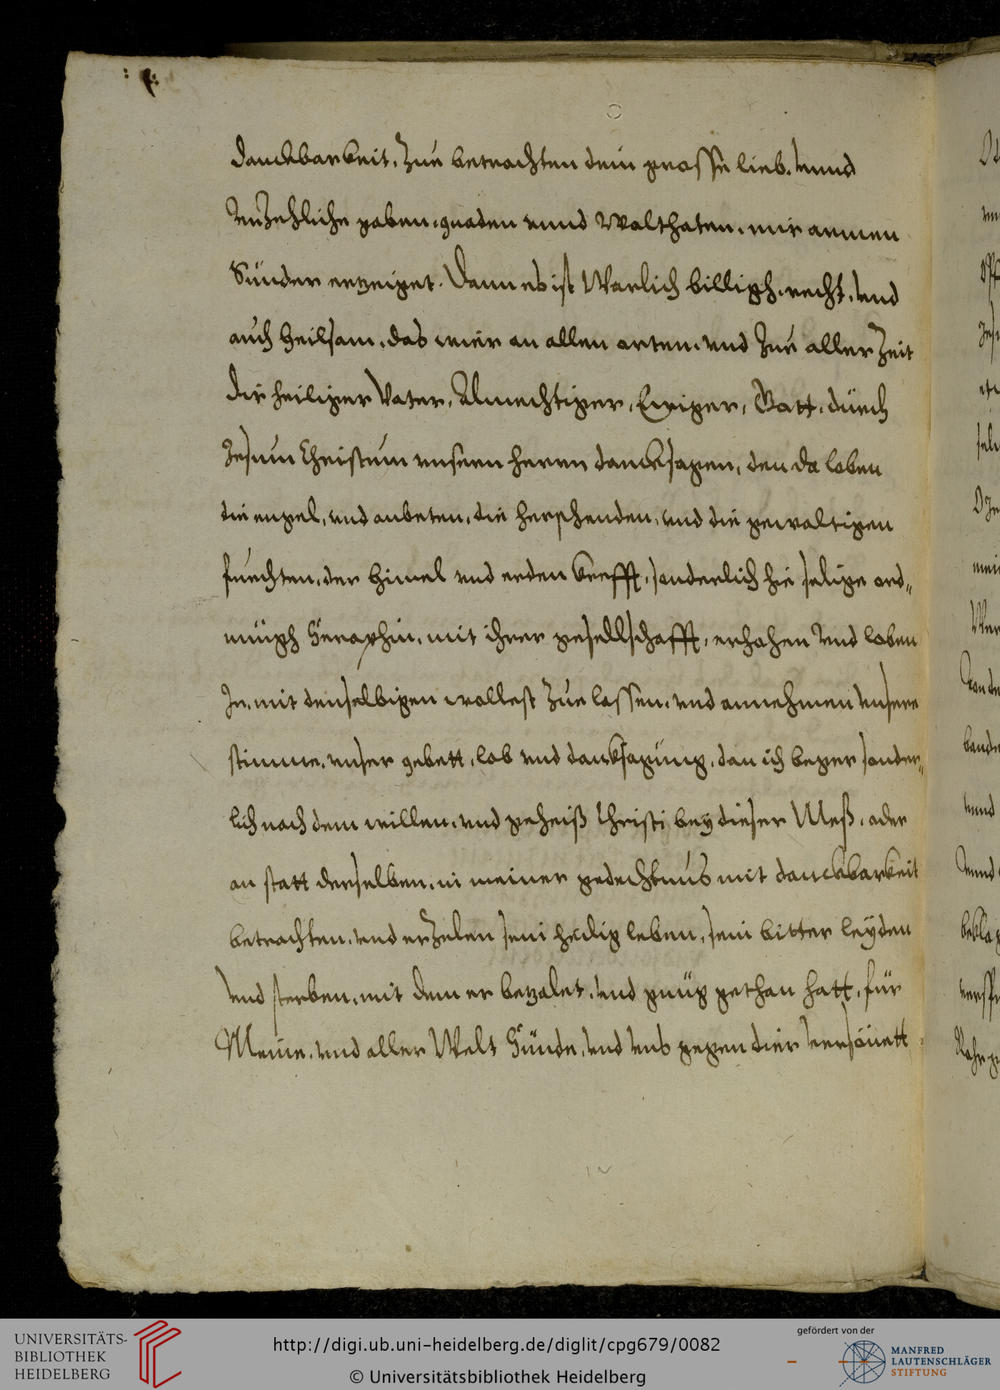 danckbarkeit, Zue betrachten dein grosse lieb, vnnd
vnZehliche gaben, gnaden vnnd Wolthaten, mir armen
Sünder erzeiget. Dann es ist Warlich billigh, recht, vnd
auch heilsam, das wier an allen orten, vnd Zue aller Zeit
dir heiliger Vater, Almechtiger, Ewiger, Gott, durch
Jesum Christum vnsern herrn dancksagen, den da loben
die engel, vnd anbeten, die herschenden, vnd die gewaltigen
fürchten, der himel vnd erden krefft, sonderlich die selige ord„
nungh Seraphin, mit ihrer geselllschafft, erhohen vnd loben
In, mit denselbigen wollest Zue lassen, vnd annehmen vnsere
stimme, vnser gebett, lob vnd danksagung, dan ich beger sonder„
lich nach dem willen, vnd geheiß Christi bey dieser Meß, oder
an statt derselben, in meiner gedechtnus mit danckbarkeit
betrachten, vnd erZelen sein heilig leben, sein bitter leyden
vnd sterben, mit dem er bezalet, vnd gnug gethan hatt, für
Meine, vnd aller Welt Sünde, vnd vns gegen dier versönett
UNIVERSITÄTS-
BIBLIOTHEK
HEIDELBERG
http://digi.ub.uni-heidelberg.de/diglit/cpg679/0082
© Universitätsbibliothek Heidelberg
gefördert von der
MANFRED
LAUTENSCHLÄGER
STIFTUNG